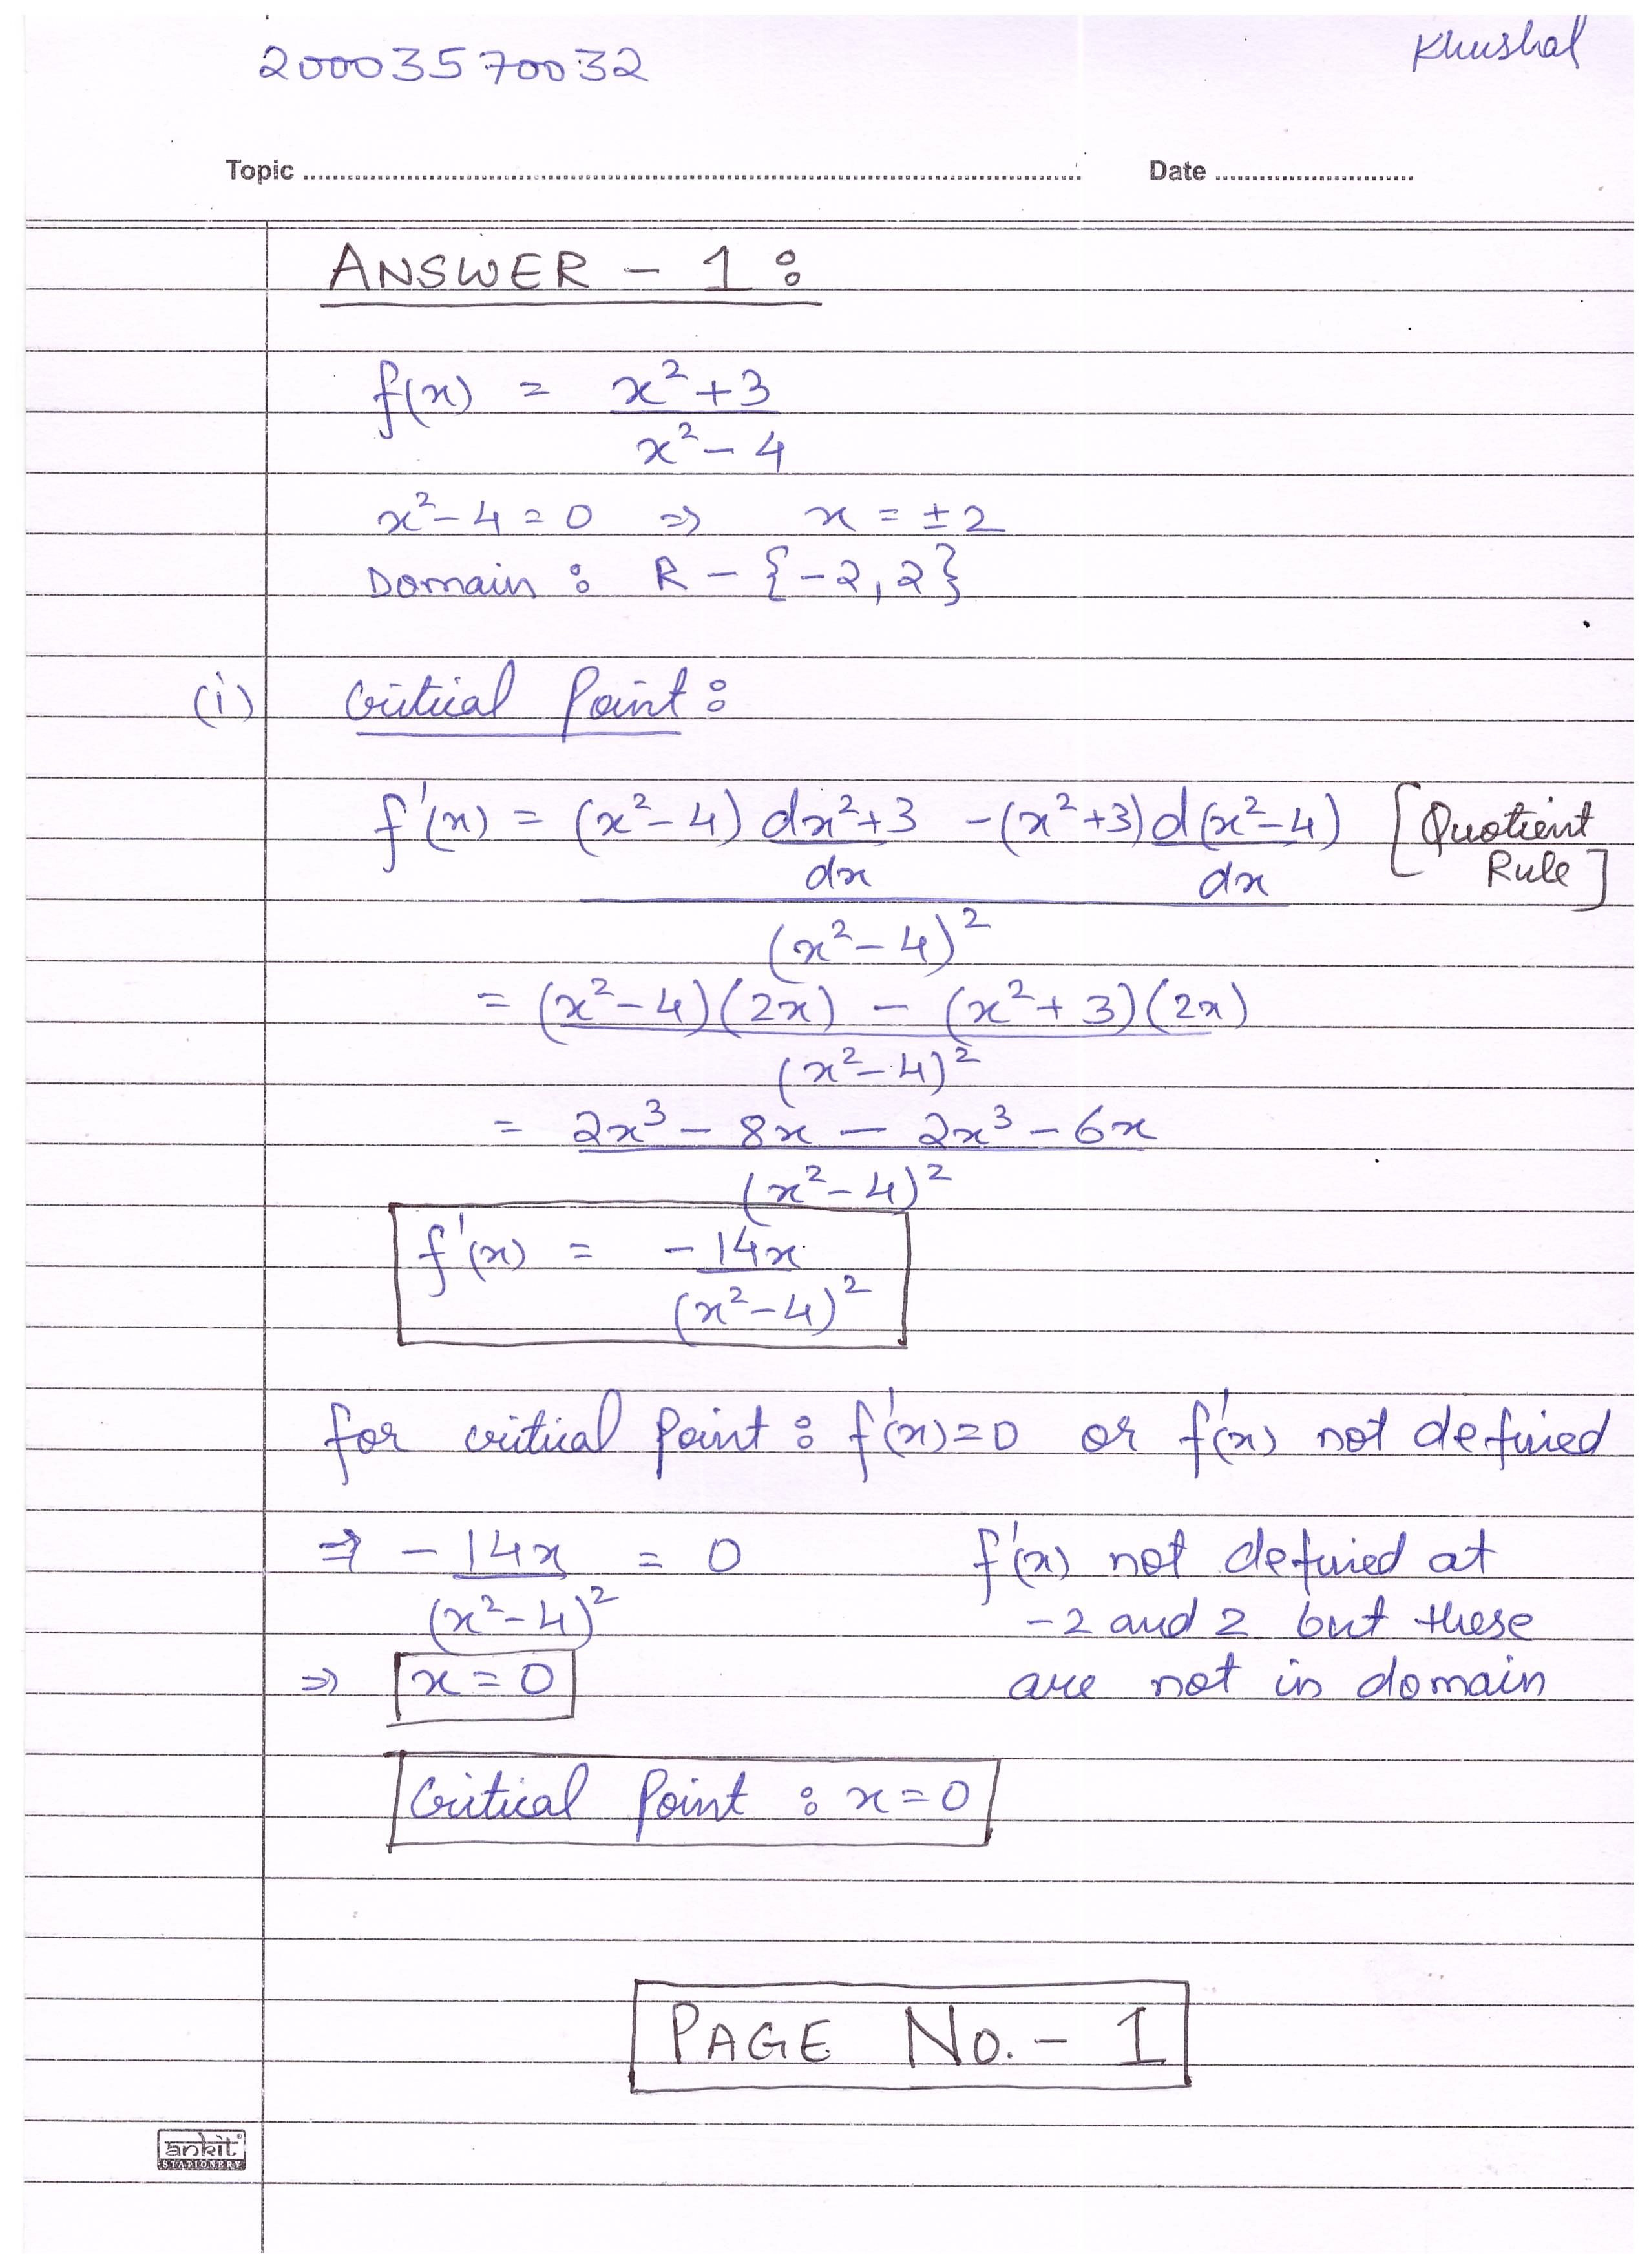 20003570032
Khushal
Topic ........ Date ........
ANSWER - 1 :
f(x) = x²+3
x²-4
x²-4=0 ⇒ x = ±2
Domain : R - {-2, 2}
(i) Critical Point :
f'(x) = (x²-4) dx²+3 -(x²+3) d(x²-4) [Quotient
dx dx Rule]
(x²-4)²
= (x²-4)(2x) - (x²+3)(2x)
(x²-4)²
= 2x³ - 8x - 2x³ - 6x
(x²-4)²
f'(x) = -14x
(x²-4)²
for critical point : f'(x)=0 or f'(x) not defined
⇒ -14x = 0 f'(x) not defined at
(x²-4)² -2 and 2 but these
⇒ x=0 are not in domain
Critical Point : x=0
PAGE No.- 1
ankit
STATIONERY